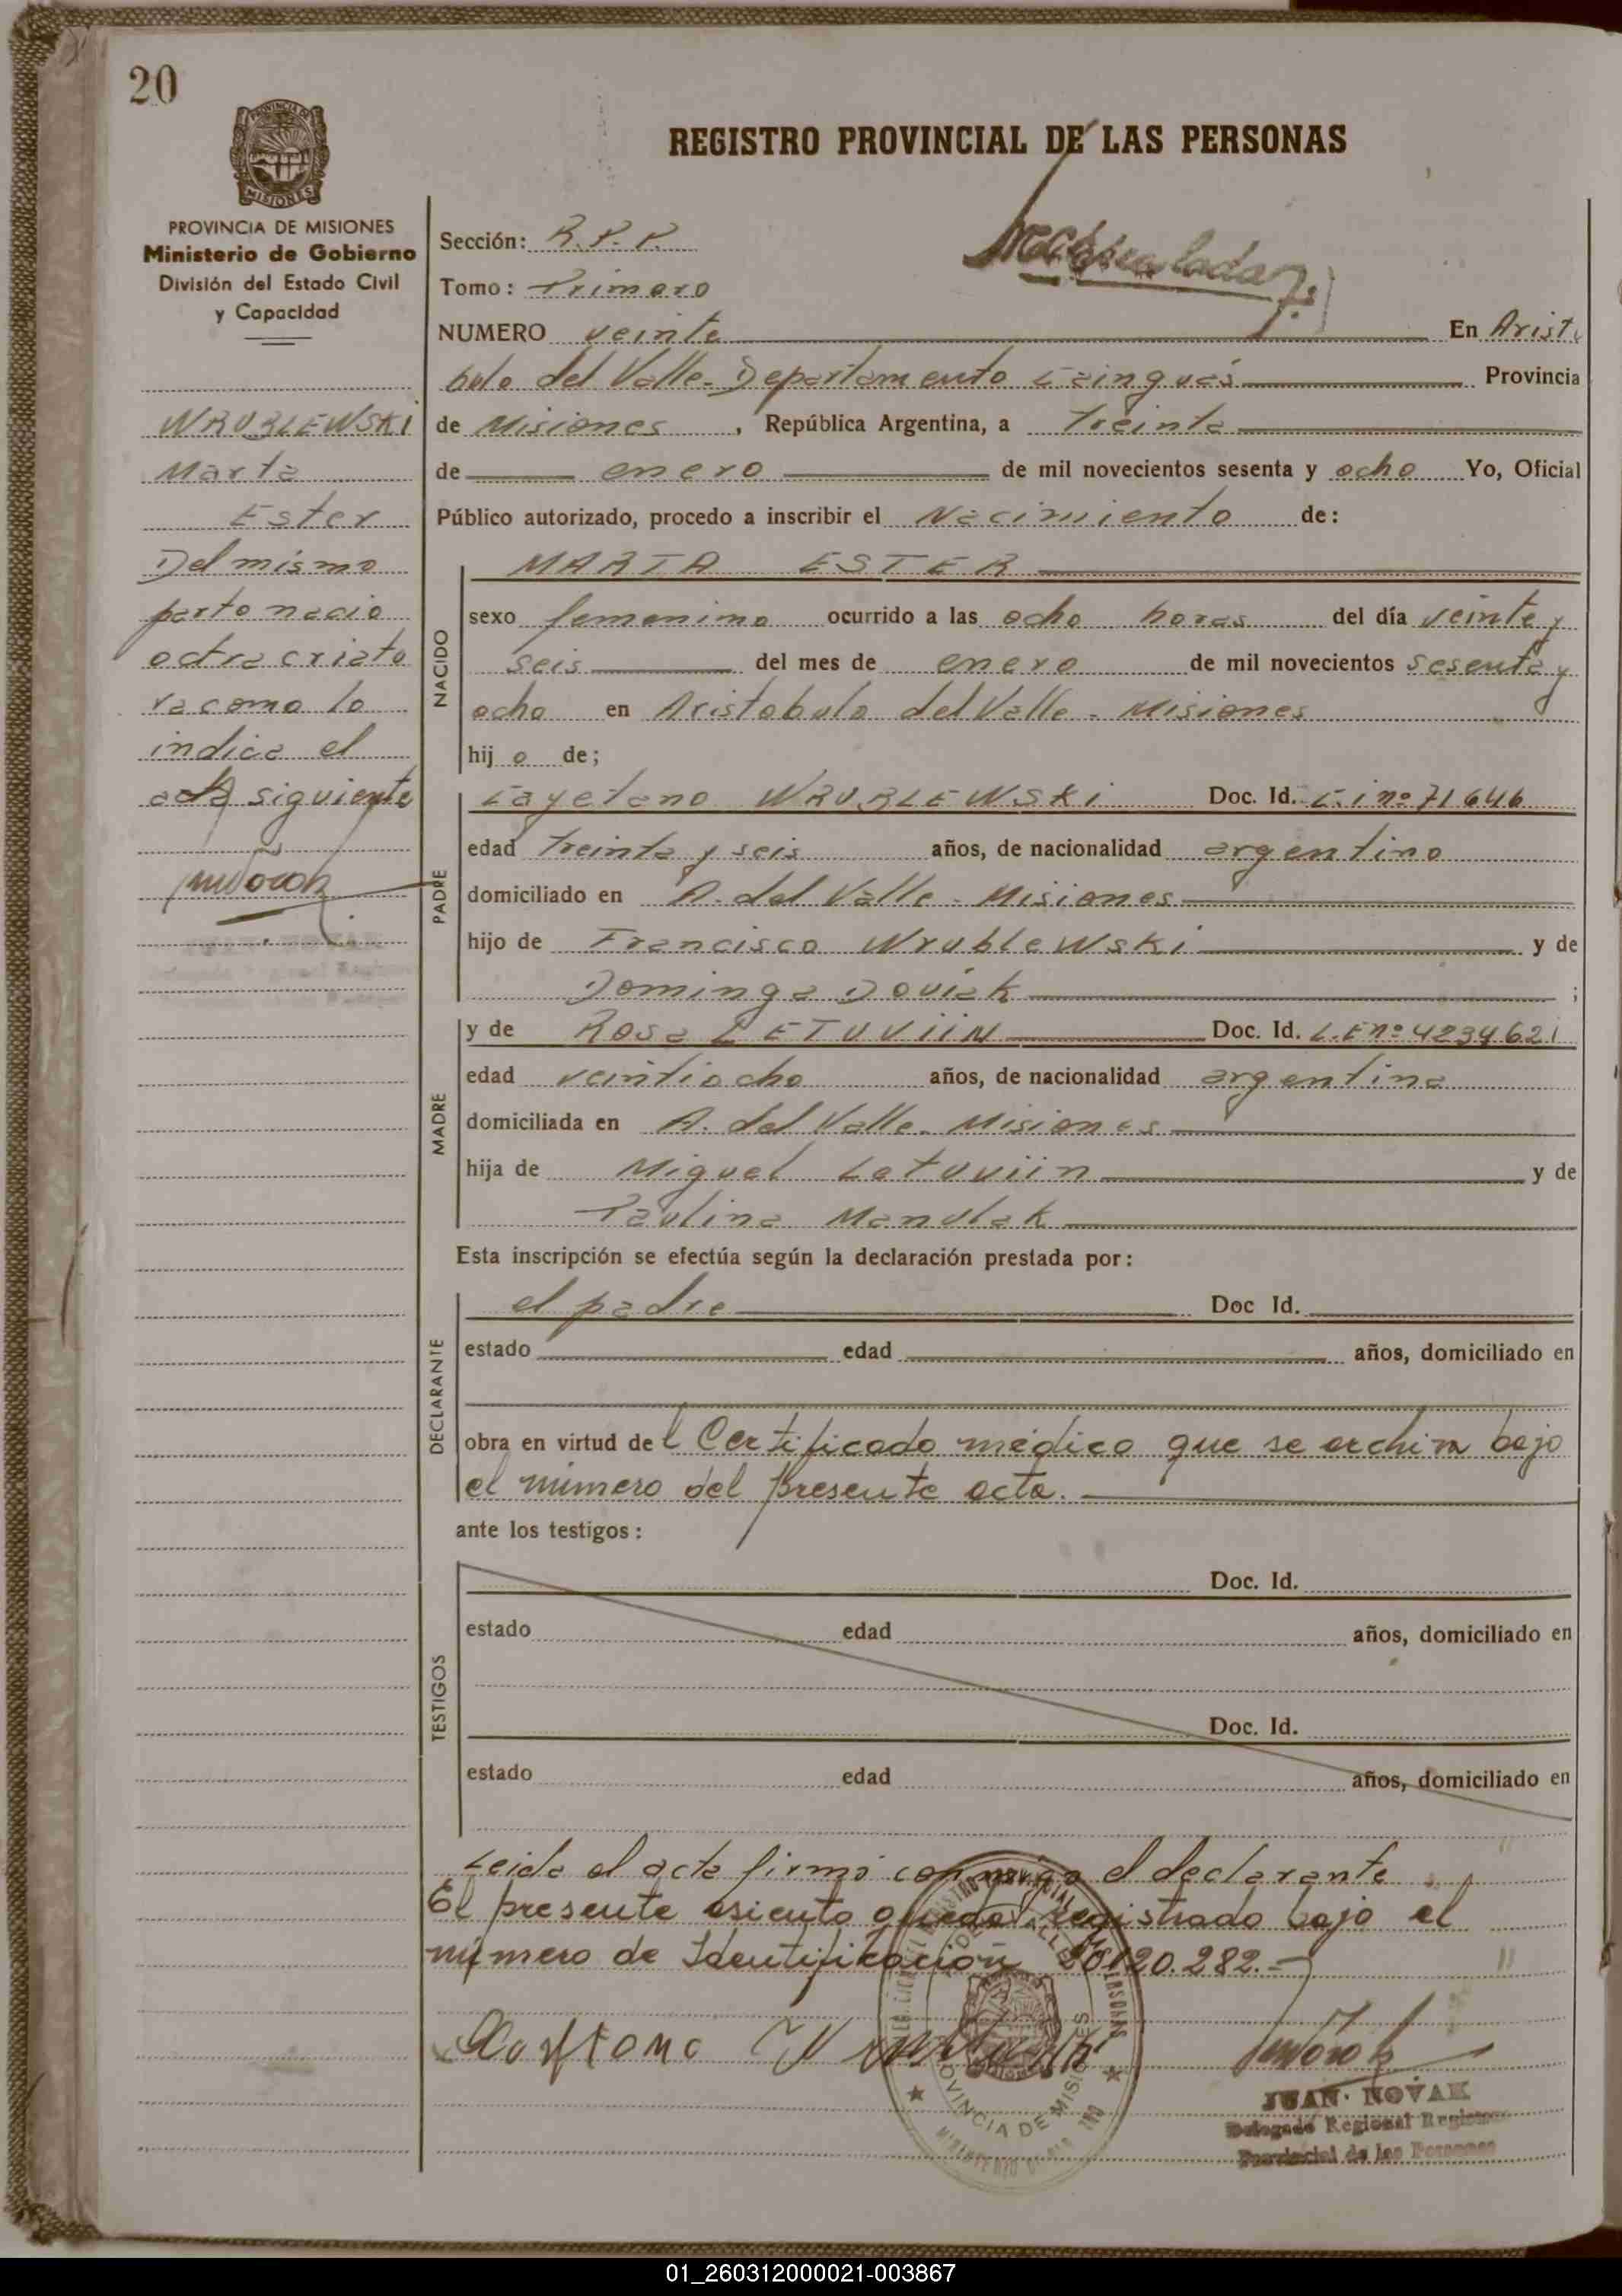 20
REGISTRO PROVINCIAL DE LAS PERSONAS
PROVINCIA DE MISIONES
Ministerio de Gobierno
División del Estado Civil
y Capacidad
WRUBLEWSKI
Marta
Ester
Del mismo
parto nacio
octra criatu
ra como lo
indica el
acta siguiente
Sección: R.P.P.
Tomo: Primero
NUMERO veinte En Aristo
bulo del Valle - Departamento Caingúas Provincia
de Misiones, República Argentina, a Treinta
de enero de mil novecientos sesenta y ocho Yo, Oficial
Público autorizado, procedo a inscribir el Nacimiento de:
NACIDO
MARTA ESTER
sexo femenino ocurrido a las ocho horas del día veinte y
seis del mes de enero de mil novecientos sesenta y
ocho en Aristobulo del Valle - Misiones
hij o de;
PADRE
Cayetano WRUBLEWSKI Doc. Id. C.I nº 71646
edad treinta y seis años, de nacionalidad argentino
domiciliado en A. del Valle - Misiones
hijo de Francisco Wrublewski y de
Dominga Doviak ;
MADRE
y de Rosa LETUVIIN Doc. Id. L.E nº 4234621
edad veintiocho años, de nacionalidad argentina
domiciliada en A. del Valle - Misiones
hija de Miguel Letuviin y de
Paulina Manulak
Esta inscripción se efectúa según la declaración prestada por:
DECLARANTE
el padre Doc Id.
estado edad años, domiciliado en
obra en virtud del Certificado médico que se archiva bajo
el número del presente acta.
ante los testigos:
TESTIGOS
Doc. Id.
estado edad años, domiciliado en
Doc. Id.
estado edad años, domiciliado en
Leida el acta firmó conmigo el declarante
El presente asiento queda registrado bajo el
número de Identificación 20.120.282.-
JUAN NOVAK
Delegado Regional Registro
Provincial de las Personas
01_260312000021-003867